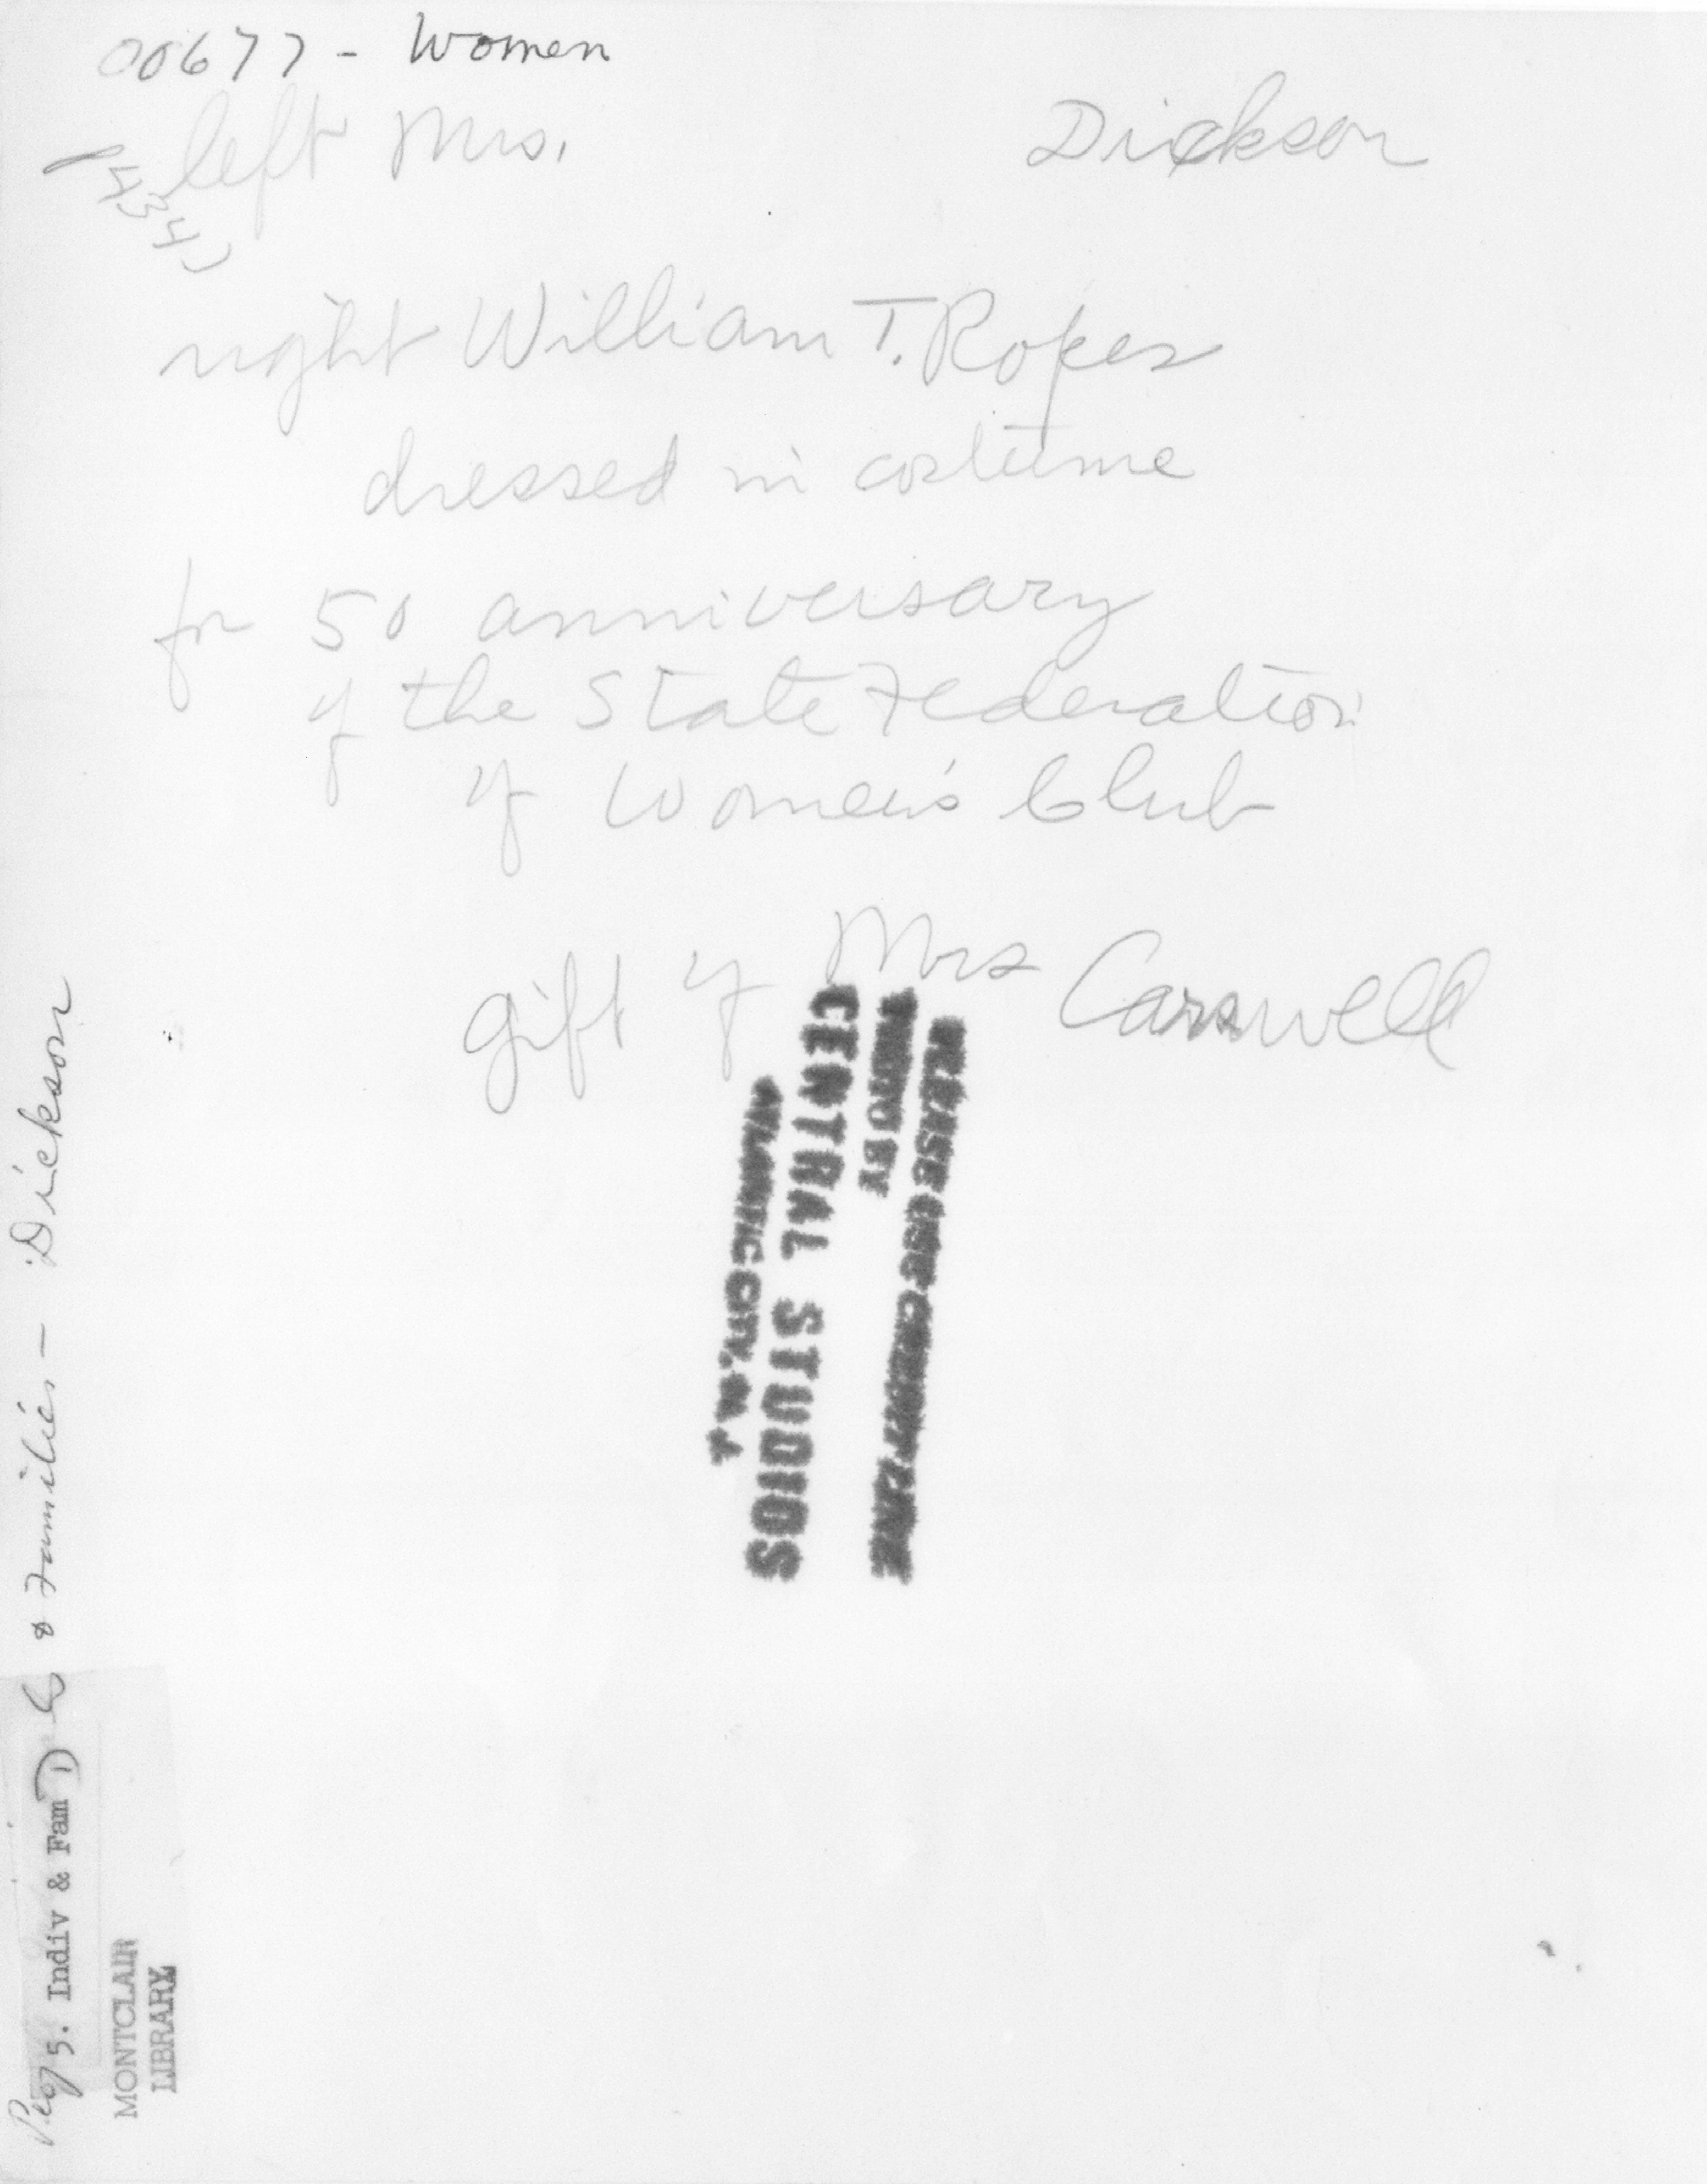 00677 - Women
left Mrs. Dickson
right William T. Ropes
dressed in costume
for 50 anniversary
of the State Federation
of Women's Club
gift of Mrs Carswell
PLEASE USE CREDIT LINE
PHOTO BY
CENTRAL STUDIOS
ATLANTIC CITY, N. J.
5. Indiv & Fam) & Families - Dickson
MONTCLAIR
LIBRARY